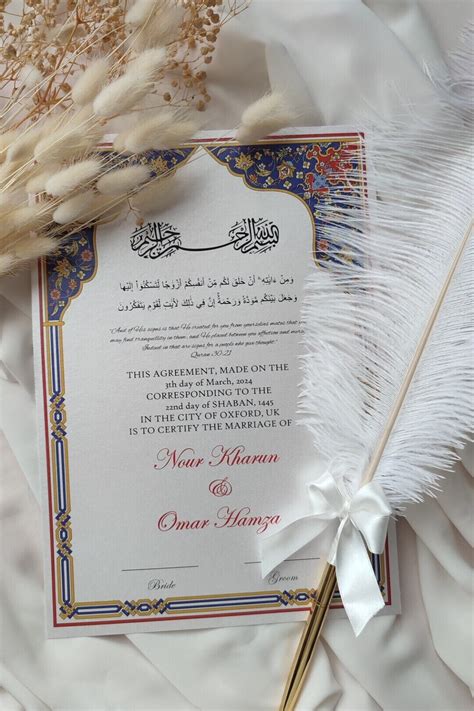 بسم الله الرحمن الرحيم
وَمِنْ ءَايَٰتِهِۦٓ أَنْ خَلَقَ لَكُم مِّنْ أَنفُسِكُمْ أَزْوَٰجًا لِّتَسْكُنُوٓا۟ إِلَيْهَا
وَجَعَلَ بَيْنَكُم مَّوَدَّةً وَرَحْمَةً إِنَّ فِى ذَٰلِكَ لَءَايَٰتٍ لِّقَوْمٍ يَتَفَكَّرُونَ
"And of His signs is that He created for you from yourselves mates that you
may find tranquillity in them, and He placed between you affection and mercy.
Indeed in that are signs for a people who give thought."
Quran 30:21
THIS AGREEMENT, MADE ON THE
3th day of March, 2024
CORRESPONDING TO THE
22nd day of SHABAN, 1445
IN THE CITY OF OXFORD, UK
IS TO CERTIFY THE MARRIAGE OF
Nour Kharun
&
Omar Hamza
Bride Groom